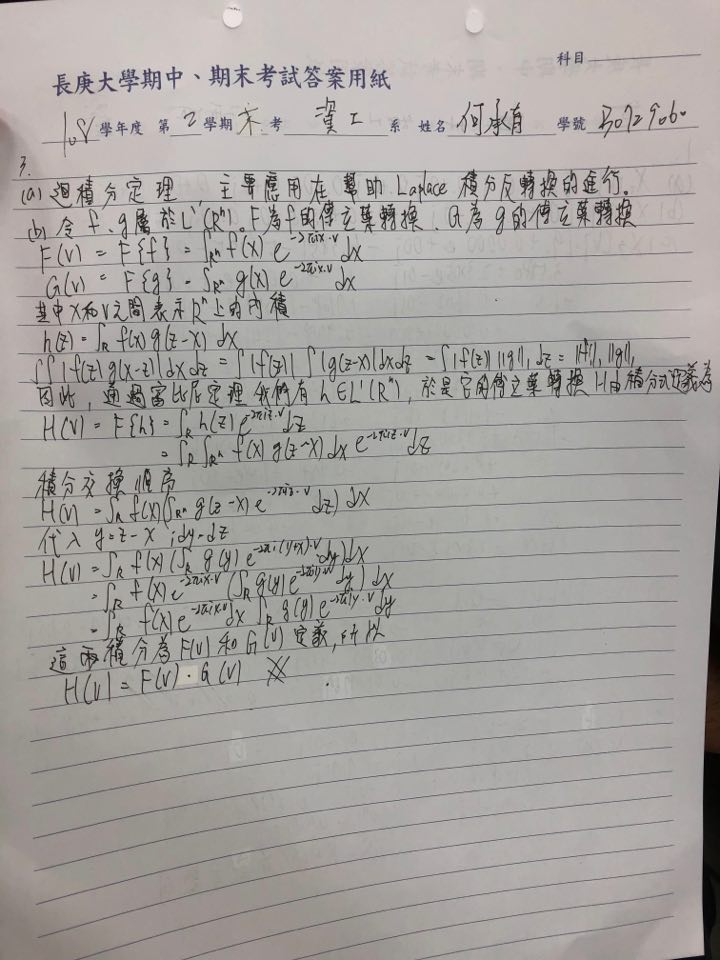 科目
長庚大學期中、期末考試答案用紙
108 學年度 第 2 學期 末 考 資工 系 姓名 何承有 學號
3.
(a) 迴積分定理 主要應用在幫助 Laplace 積分反轉換的進行。
(b) 令 f、g屬於L'(Rⁿ)。F為f的傅立葉轉換、G為g的傅立葉轉換
F(v) = F{f} = ∫Rⁿ f(x) e^-2πix·v dx
G(v) = F{g} = ∫Rⁿ g(x) e^-2πix·v dx
其中X和V之間表示Rⁿ上的內積
h(z) = ∫R f(x) g(z-x) dx
∫∫|f(z) g(x-z)| dx dz = ∫|f(z)| ∫|g(z-x)| dx dz = ∫|f(z)| ||g||₁ dz = ||f||₁ ||g||₁
因此, 通過富比尼定理 我們有 h∈L'(Rⁿ), 於是它的傅立葉轉換 H由積分式定義為
H(v) = F{h} = ∫R h(z) e^-2πiz·v dz
= ∫R ∫Rⁿ f(x) g(z-x) dx e^-2πiz·v dz
積分交換順序
H(v) = ∫R f(x) (∫Rⁿ g(z-x) e^-2πiz·v dz) dx
代入 y=z-x ; dy=dz
H(v) = ∫R f(x) (∫R g(y) e^-2πi(y+x)·v dy) dx
= ∫R f(x) e^-2πix·v (∫R g(y) e^-2πiy·v dy) dx
= ∫R f(x) e^-2πix·v dx ∫R g(y) e^-2πiy·v dy
這兩積分為 F(v) 和 G(v) 定義, 所以
H(v) = F(v) · G(v) ※